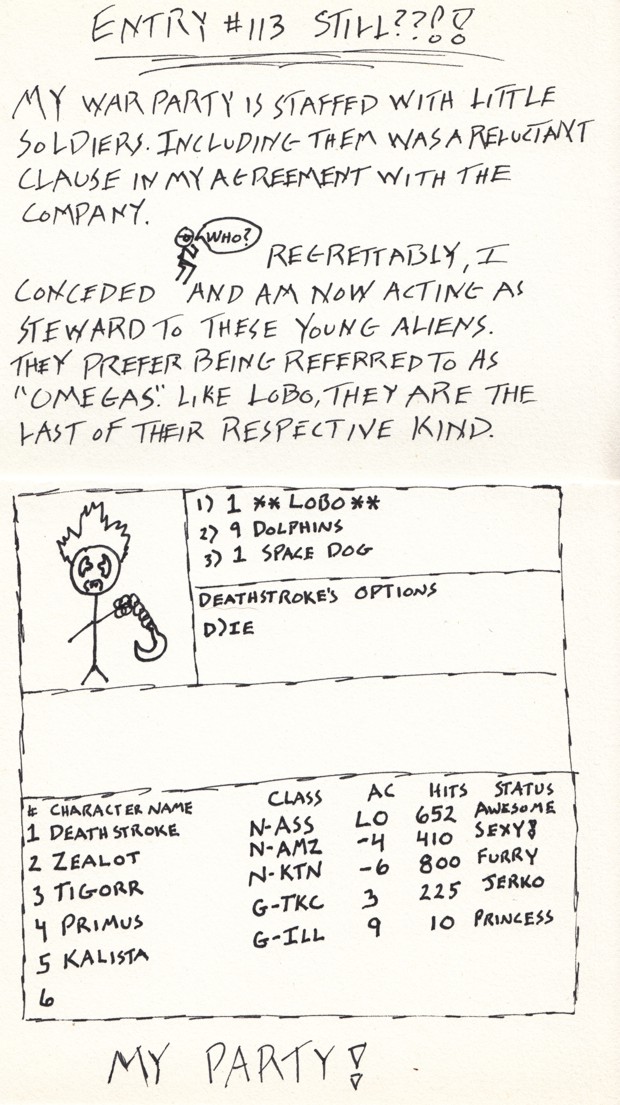 ENTRY #113 STILL??!!
MY WAR PARTY IS STAFFED WITH LITTLE
SOLDIERS. INCLUDING THEM WAS A RELUCTANT
CLAUSE IN MY AGREEMENT WITH THE
COMPANY.
WHO?
REGRETTABLY, I
CONCEDED AND AM NOW ACTING AS
STEWARD TO THESE YOUNG ALIENS.
THEY PREFER BEING REFERRED TO AS
"OMEGAS". LIKE LOBO, THEY ARE THE
LAST OF THEIR RESPECTIVE KIND.
1) 1 ** LOBO **
2) 9 DOLPHINS
3) 1 SPACE DOG
DEATHSTROKE'S OPTIONS
D)IE
# CHARACTER NAME CLASS AC HITS STATUS
1 DEATHSTROKE N-ASS LO 652 AWESOME
2 ZEALOT N-AMZ -4 410 SEXY!
3 TIGORR N-KTN -6 800 FURRY
4 PRIMUS G-TKC 3 225 JERKO
5 KALISTA G-ILL 9 10 PRINCESS
6
MY PARTY!